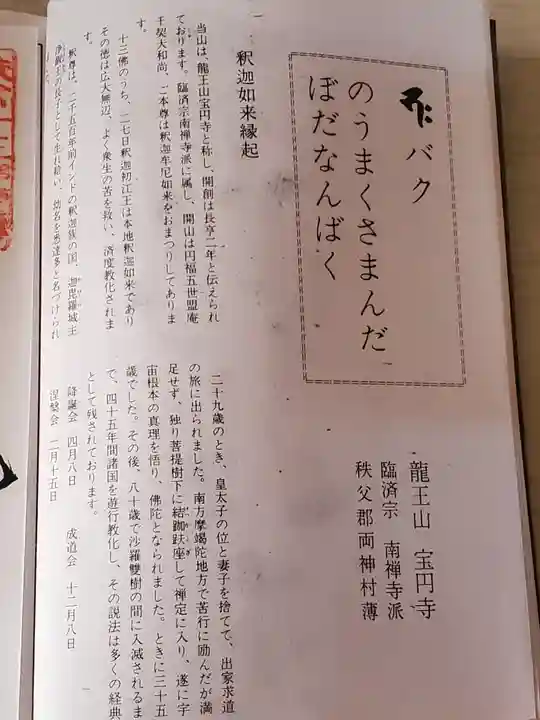 バク
のうまくさまんだ
ぼだなんばく
龍王山 宝円寺
臨済宗 南禅寺派
秩父郡両神村薄
釈迦如来縁起
当山は、龍王山宝円寺と称し、開創は長亨二年と伝えられ
ております。臨済宗南禅寺派に属し、開山は円福五世盟庵
王契大和尚、ご本尊は釈迦牟尼如来をおまつりしてありま
す。
十三佛のうち、二七日釈迦初江王は本地釈迦如来であり
その徳は広大無辺、よく衆生の苦を救い、済度教化されま
す。
釈尊は、二千五百年前インドの釈迦族の国、迦毘羅城主
浄飯王の長子として生れ給い、幼名を悉達多と名づけられ
二十九歳のとき、皇太子の位と妻子を捨てて、出家求道
の旅に出られました。南方摩竭陀地方で苦行に励んだが満
足せず、独り菩提樹下に結跏趺座して禅定に入り、遂に宇
宙根本の真理を悟り、佛陀となられました。ときに三十五
歳でした。その後、八十歳で沙羅雙樹の間に入滅されるま
で、四十五年間諸国を遊行教化し、その説法は多くの経典
として残されております。
降誕会 四月八日 成道会 十二月八日
涅槃会 二月十五日